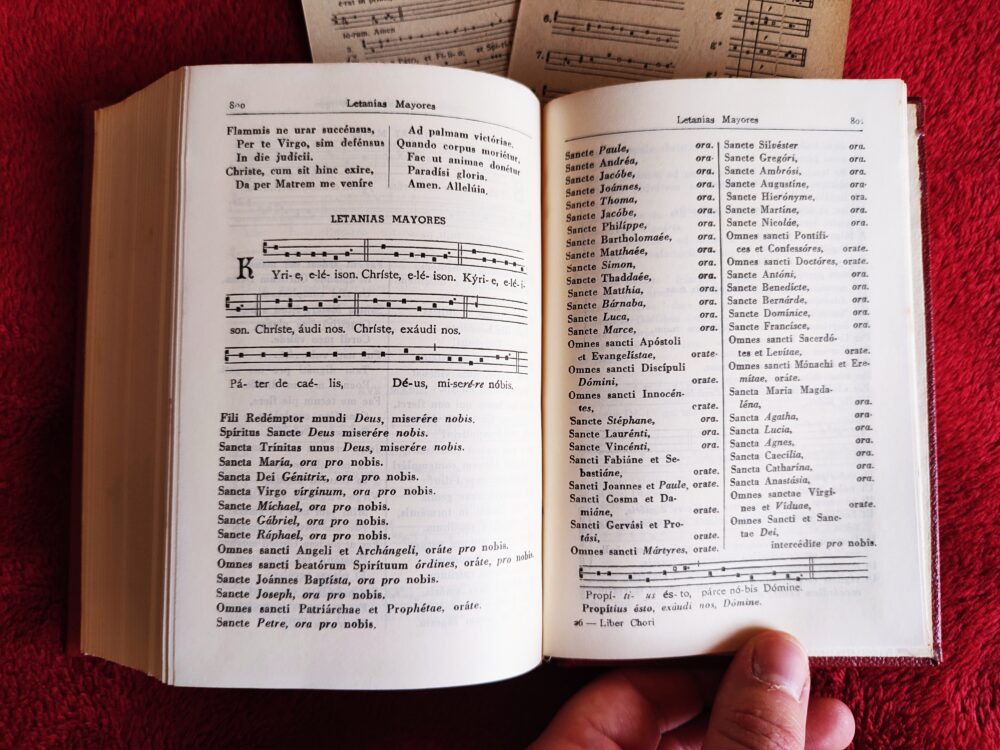 érat in prin
tórum. Amen
5.
Patro, et Fí-li-o; et Spi-rí-
6.
7.
8
g²
800 Letanías Mayores
Flammis ne urar succénsus,
Per te Virgo, sim defénsus
In die judícii.
Christe, cum sit hinc exire,
Da per Matrem me veníre
Ad palmam victóriae.
Quando corpus moriétur,
Fac ut animae donétur
Paradísi gloria.
Amen. Allelúia.
LETANIAS MAYORES
K
Yri- e, e-lé- ison. Chríste, e-lé- ison. Kýri- e, e-lé- i-
son. Chríste, áudi nos. Chríste, exáudi nos.
Pá- ter de caé- lis, Dé-us, mi-serére nóbis.
Fili Redémptor mundi Deus, miserére nobis.
Spíritus Sancte Deus miserére nobis.
Sancta Trínitas unus Deus, miserére nobis.
Sancta María, ora pro nobis.
Sancta Dei Génitrix, ora pro nobis.
Sancta Virgo vírginum, ora pro nobis.
Sancte Míchael, ora pro nobis.
Sancte Gábriel, ora pro nobis.
Sancte Ráphael, ora pro nobis.
Omnes sancti Angeli et Archángeli, oráte pro nobis.
Omnes sancti beatórum Spirítuum órdines, oráte, pro nobis.
Sancte Joánnes Baptísta, ora pro nobis.
Sancte Joseph, ora pro nobis.
Omnes sancti Patriárchae et Prophétae, oráte.
Sancte Petre, ora pro nobis.
Letanías Mayores 801
Sancte Paule, ora.
Sancte Andréa, ora.
Sancte Jacóbe, ora.
Sancte Joánnes, ora.
Sancte Thoma, ora.
Sancte Jacóbe, ora.
Sancte Philíppe, ora.
Sancte Bartholomaée, ora.
Sancte Matthaée, ora.
Sancte Simon, ora.
Sancte Thaddaée, ora.
Sancte Matthia, ora.
Sancte Bárnaba, ora.
Sancte Luca, ora.
Sancte Marce, ora.
Omnes sancti Apóstoli
et Evangelístae, orate.
Omnes sancti Discípuli
Dómini, orate.
Omnes sancti Innocén-
tes, orate.
Sancte Stéphane, ora.
Sancte Laurénti, ora.
Sancte Vincénti, ora.
Sancti Fabiáne et Se-
bastiáne, orate.
Sancti Joannes et Paule, orate.
Sancti Cosma et Da-
miáne, orate.
Sancti Gervási et Pro-
tási, orate.
Omnes sancti Mártyres, orate.
Sancte Silvéster ora.
Sancte Gregóri, ora.
Sancte Ambrósi, ora.
Sancte Augustine, ora.
Sancte Hierónyme, ora.
Sancte Martíne, ora.
Sancte Nicoláe, ora.
Omnes sancti Pontífi-
ces et Confessóres, orate.
Omnes sancti Doctóres, orate.
Sancte Antóni, ora.
Sancte Benedícte, ora.
Sancte Bernárde, ora.
Sancte Domínice, ora.
Sancte Francísce, ora.
Omnes sancti Sacerdó-
tes et Levitae, orate.
Omnes sancti Mónachi et Ere-
mitae, oráte.
Sancta Maria Magda-
léna, ora.
Sancta Agatha, ora.
Sancta Lucia, ora.
Sancta Agnes, ora.
Sancta Caecilia, ora.
Sancta Catharína, ora.
Sancta Anastásia, ora.
Omnes sanctae Virgi-
nes et Viduae, orate.
Omnes Sancti et Sanc-
tae Dei,
intercédite pro nobis.
Propí- ti- us és-to, párce nó-bis Dómine.
Propítius ésto, exáudi nos, Dómine.
26 — Liber Chori